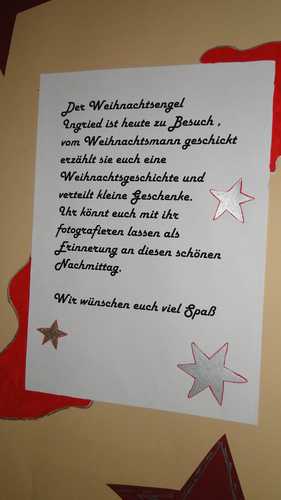 Der Weihnachtsengel
Ingried ist heute zu Besuch ,
vom Weihnachtsmann geschickt
erzählt sie euch eine
Weihnachtsgeschichte und
verteilt kleine Geschenke.
Ihr könnt euch mit ihr
fotografieren lassen als
Erinnerung an diesen schönen
Nachmittag.
Wir wünschen euch viel Spaß